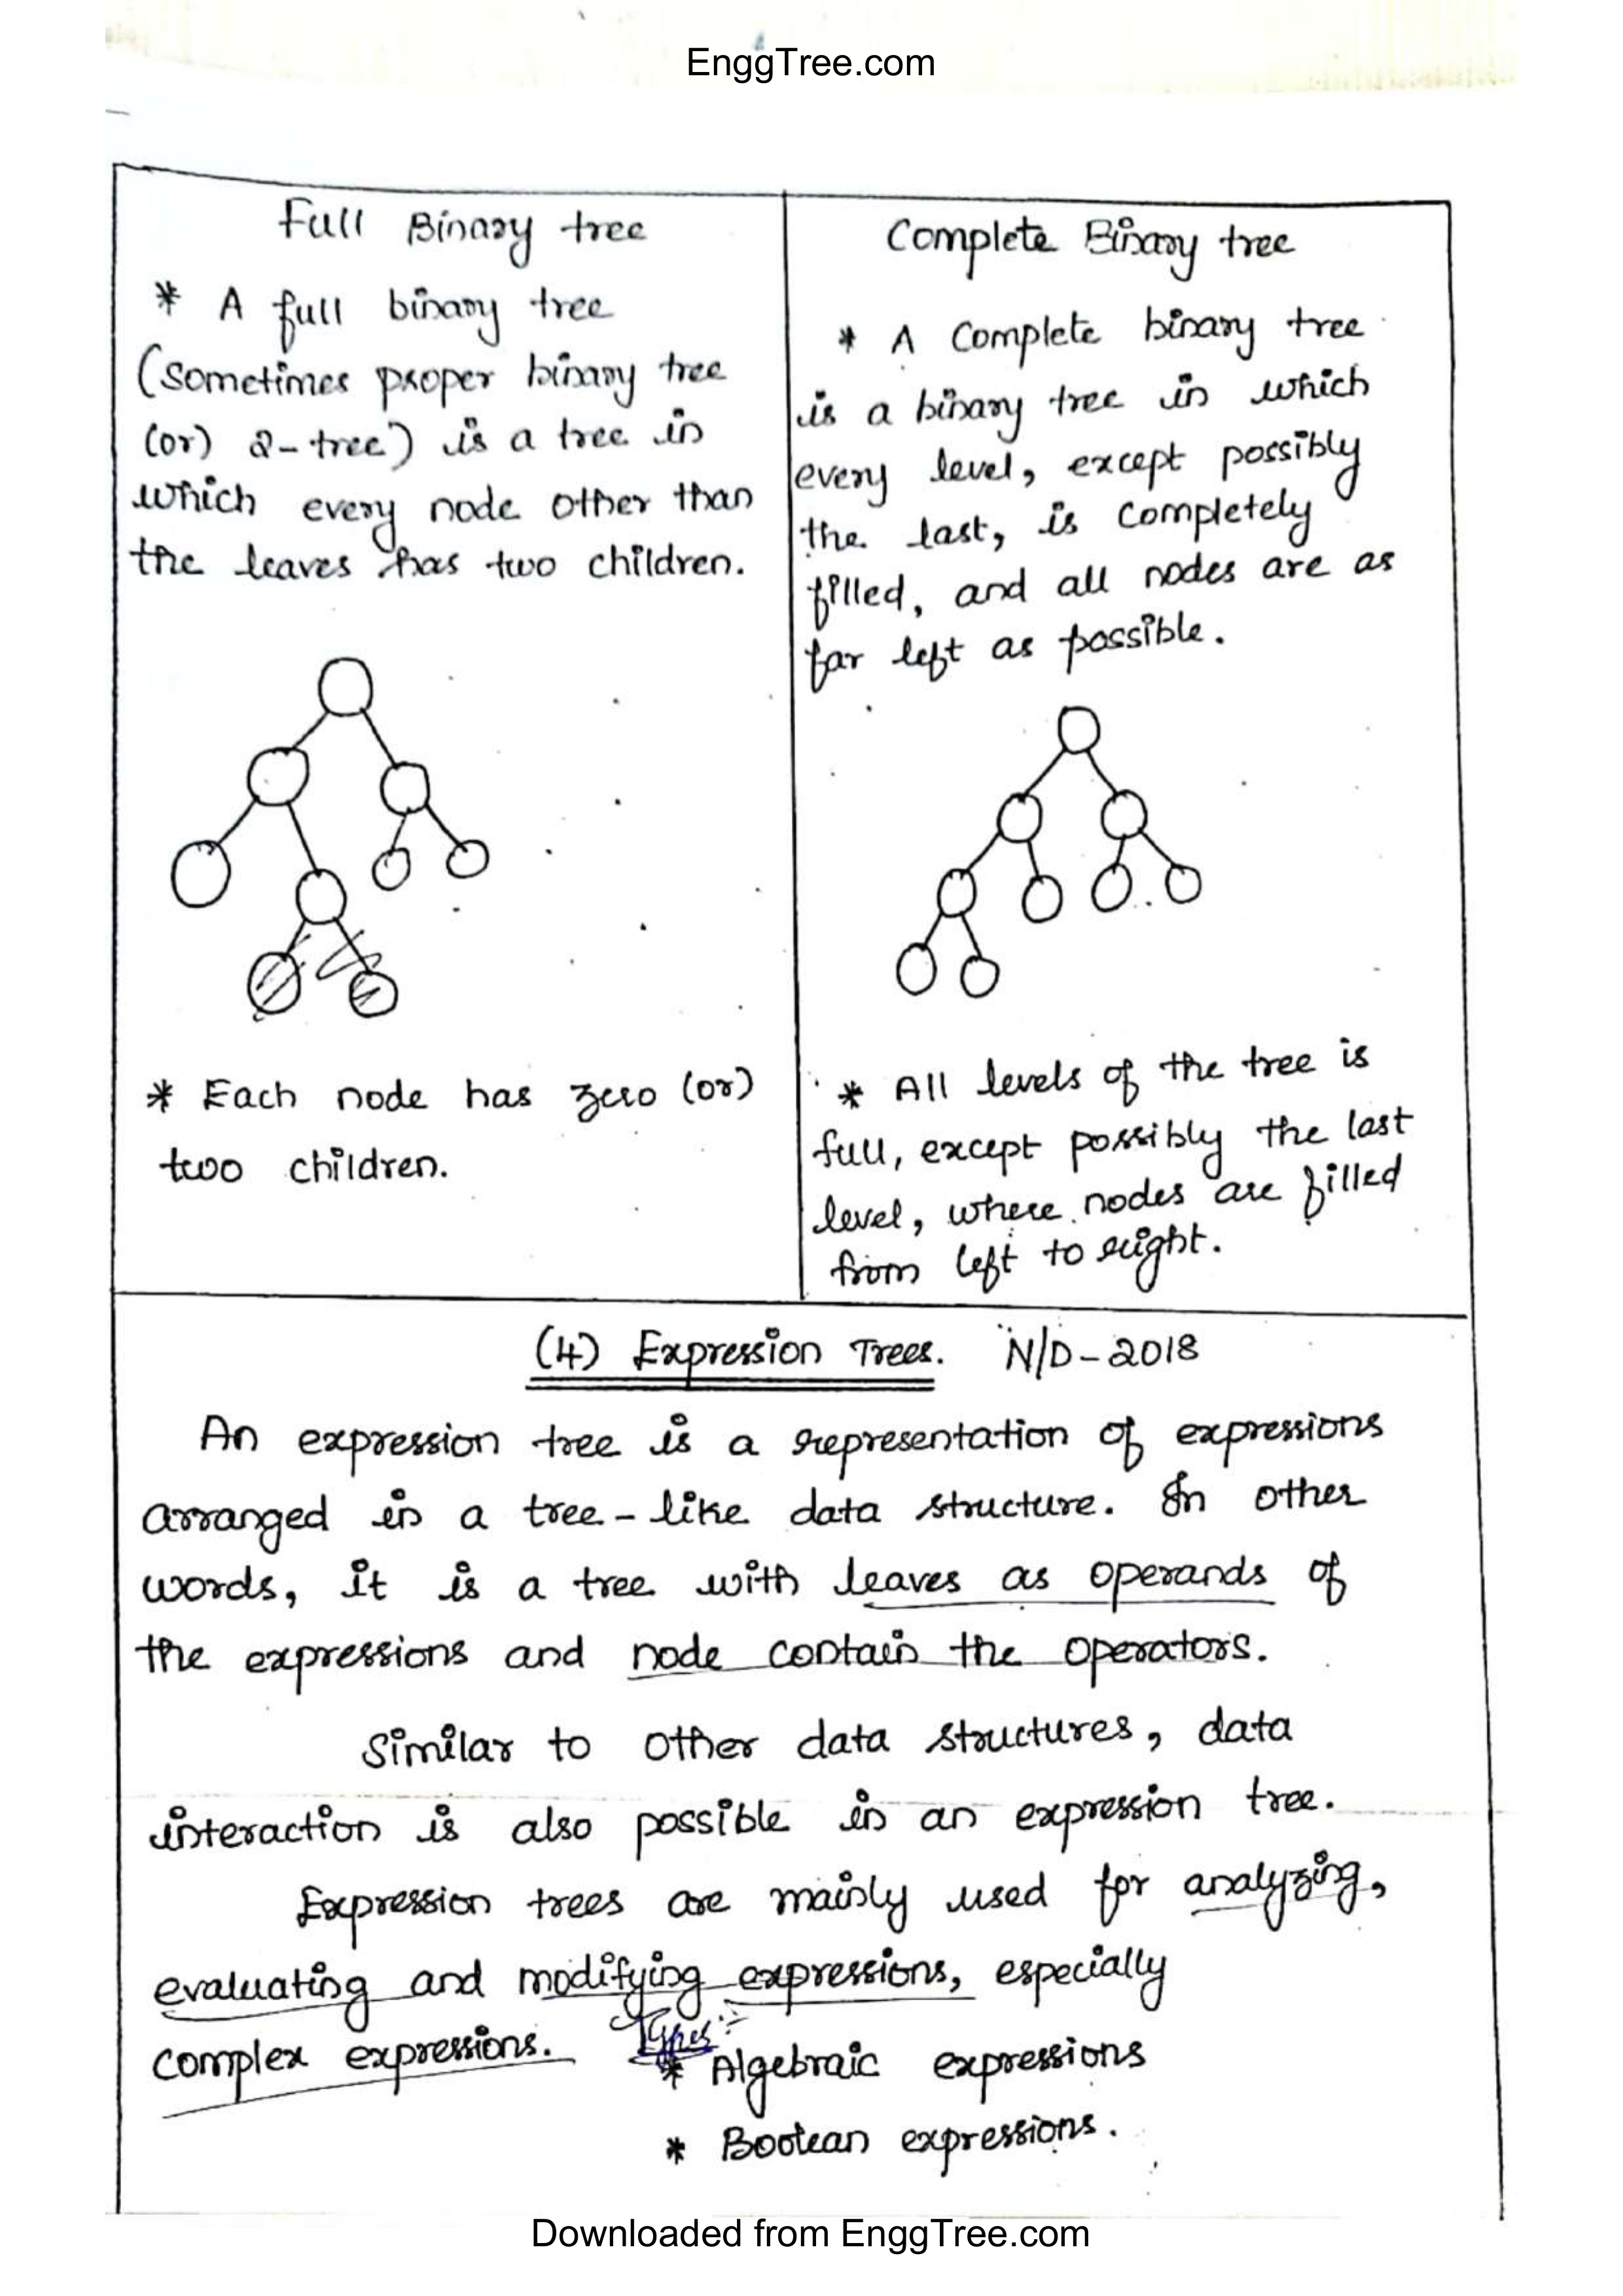 EnggTree.com
Full Binary tree
* A full binary tree
(sometimes proper binary tree
(or) 2-tree) is a tree in
which every node other than
the leaves has two children.
* Each node has zero (or)
two children.
Complete Binary tree
* A Complete binary tree
is a binary tree in which
every level, except possibly
the last, is completely
filled, and all nodes are as
far left as possible.
* All levels of the tree is
full, except possibly the last
level, where nodes are filled
from left to right.
(4) Expression Trees. N/D-2018
An expression tree is a representation of expressions
arranged in a tree-like data structure. In other
words, it is a tree with leaves as operands of
the expressions and node contain the operators.
Similar to other data structures, data
interaction is also possible in an expression tree.
Expression trees are mainly used for analyzing,
evaluating and modifying expressions, especially
complex expressions. Types:-
* Algebraic expressions
* Boolean expressions.
Downloaded from EnggTree.com